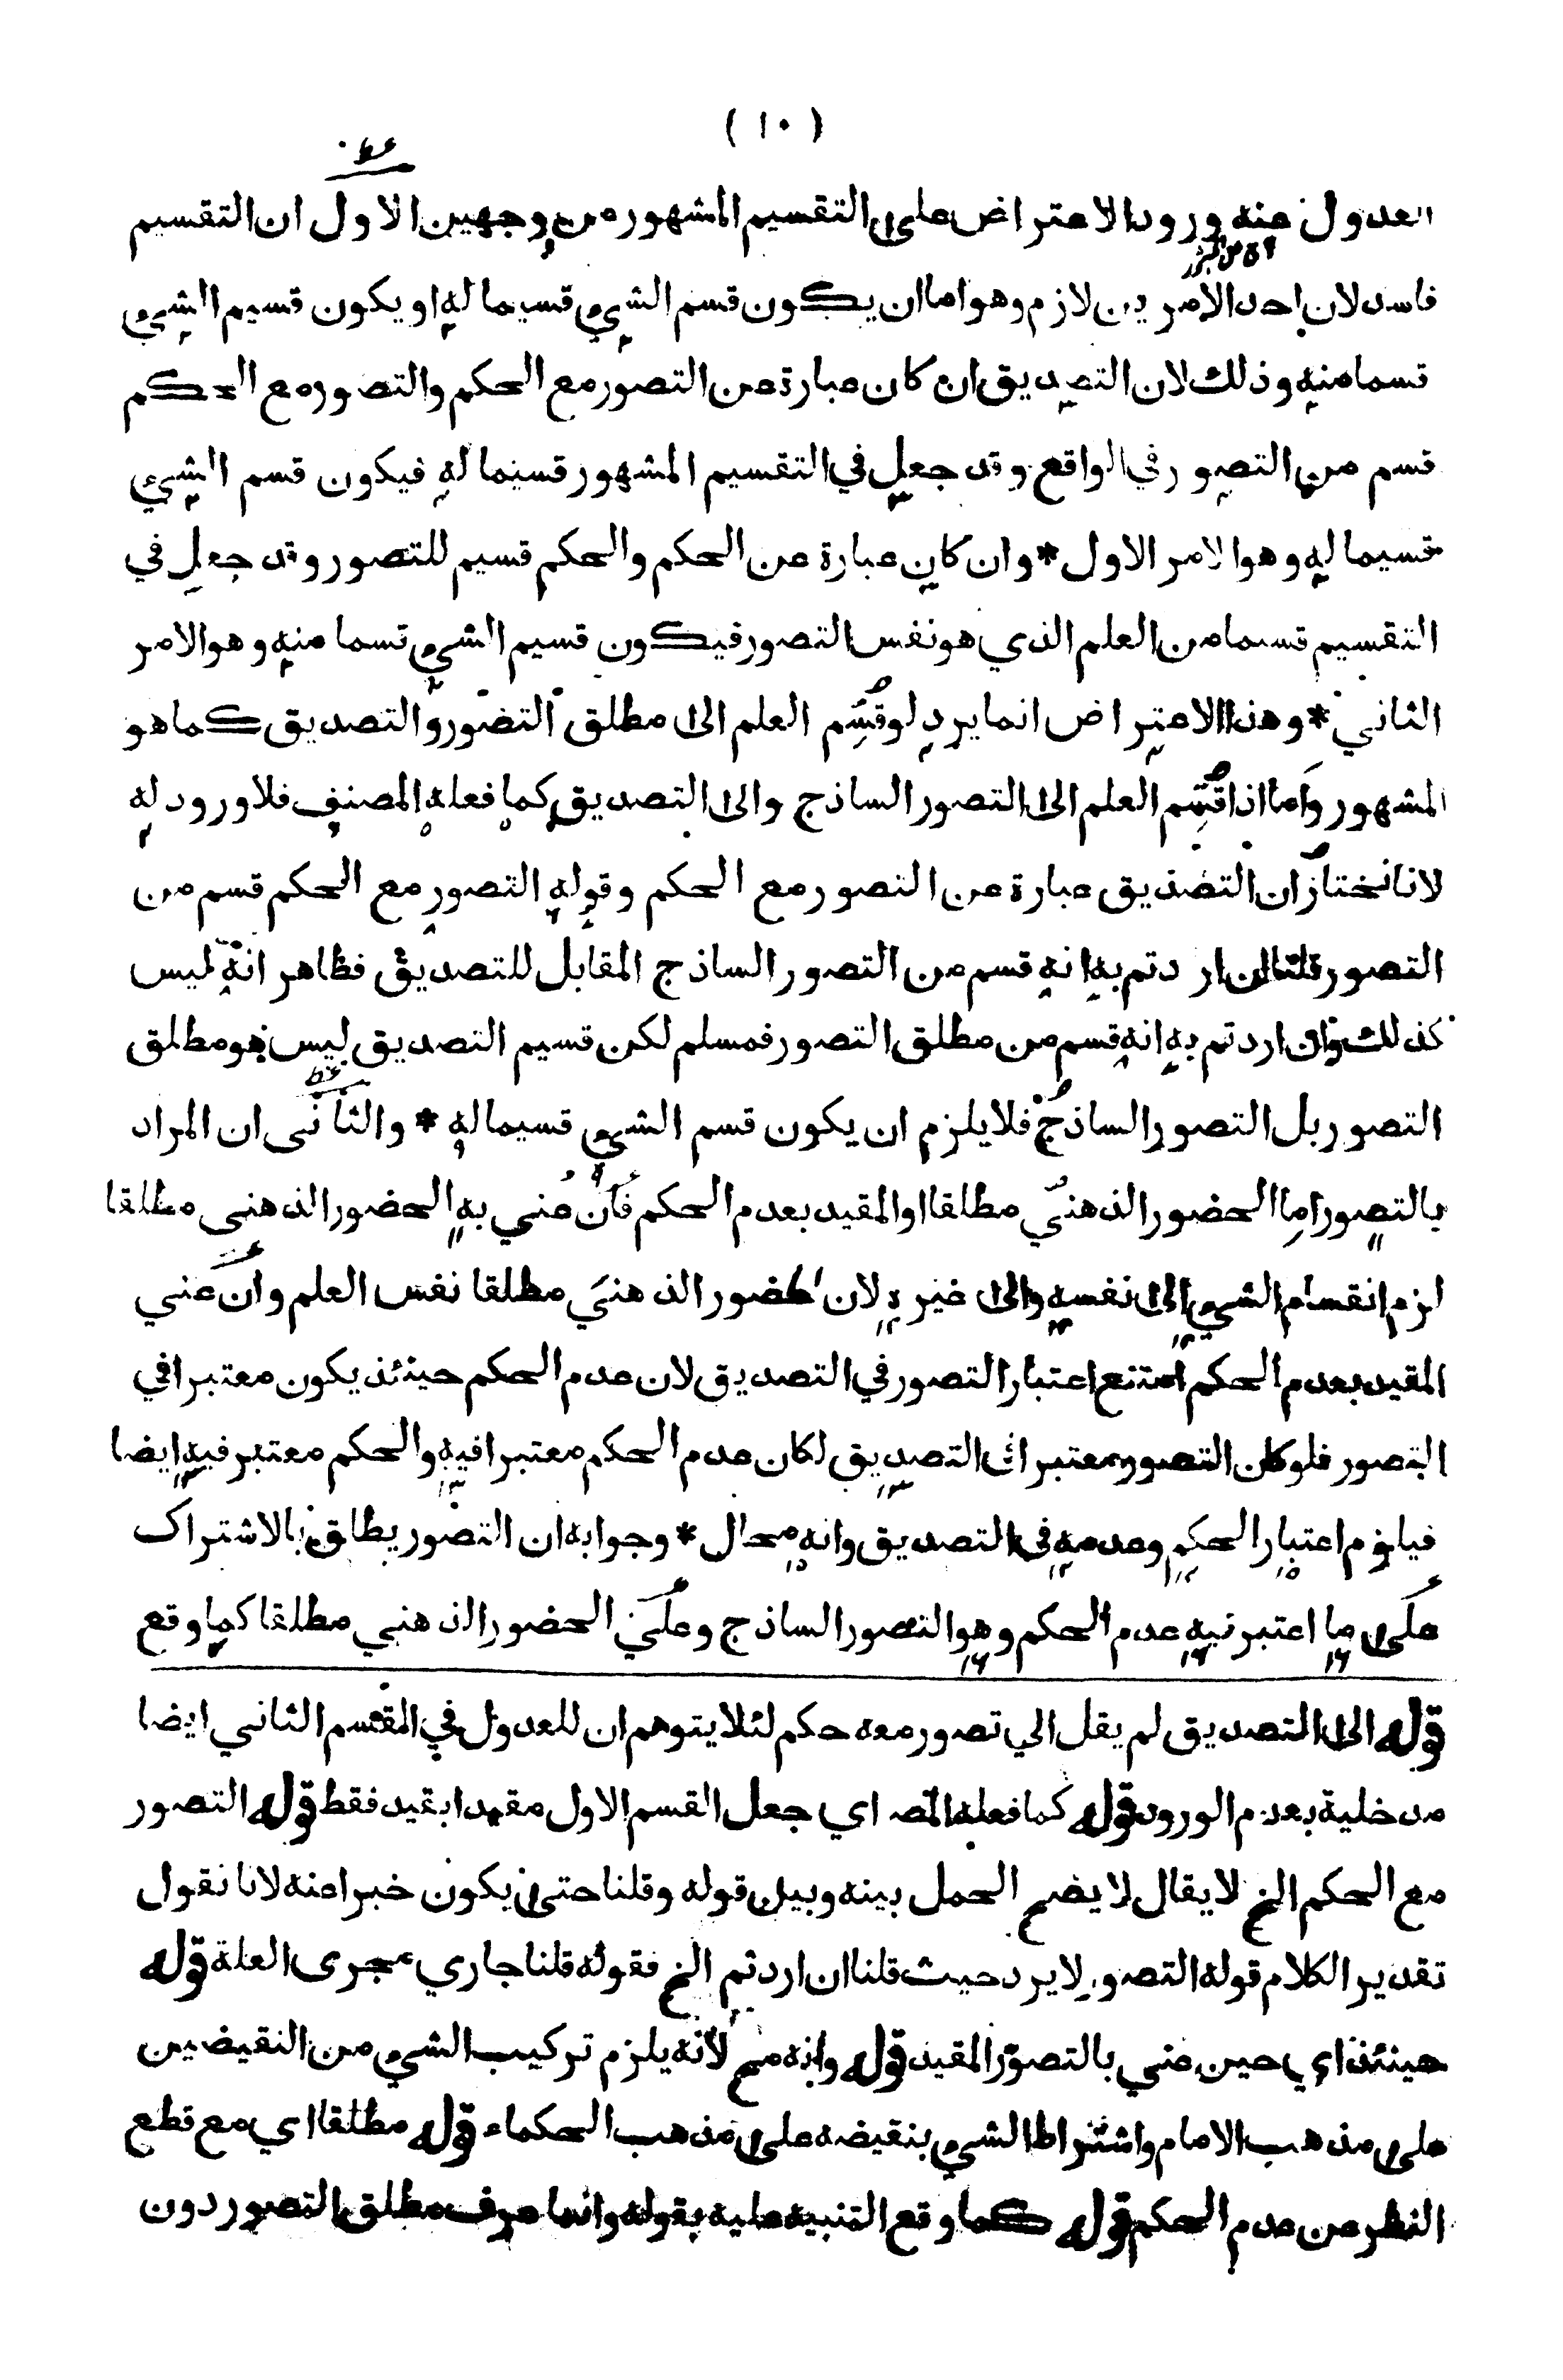 ( ١٠ )
العدول عنه ورود الاعتراض على التقسيم المشهور من وجهين الاول ان التقسيم
فاسد لان احد الامرين لازم وهو اما ان يكون قسم الشيء قسيما له او يكون قسيم الشيء
قسما منه وذلك لان التصديق ان كان عبارة عن التصور مع الحكم والتصور مع الحكم
قسم من التصور في الواقع وقد جعل في التقسيم المشهور قسيما له فيكون قسم الشيء
قسيما له وهو الامر الاول * وان كان عبارة عن الحكم والحكم قسيم للتصور وقد جعل في
التقسيم قسما من العلم الذي هو نفس التصور فيكون قسيم الشيء قسما منه وهو الامر
الثاني * وهذا الاعتراض انما يرد لو قسم العلم الى مطلق التصور والتصديق كما هو
المشهور واما اذا قسم العلم الى التصور الساذج والى التصديق كما فعله المصنف فلا ورود له
لانا نختار ان التصديق عبارة عن التصور مع الحكم وقوله التصور مع الحكم قسم من
التصور قلنا ان اردتم به انه قسم من التصور الساذج المقابل للتصديق فظاهر انه ليس
كذلك وان اردتم به انه قسم من مطلق التصور فمسلم لكن قسيم التصديق ليس هو مطلق
التصور بل التصور الساذج فلا يلزم ان يكون قسم الشيء قسيما له * والثاني ان المراد
بالتصور اما الحضور الذهني مطلقا او المقيد بعدم الحكم فان عني به الحضور الذهني مطلقا
لزم انقسام الشيء الى نفسه والى غيره لان الحضور الذهني مطلقا نفس العلم وان عني
المقيد بعدم الحكم امتنع اعتبار التصور في التصديق لان عدم الحكم حينئذ يكون معتبرا في
التصور فلو كان التصور معتبرا في التصديق لكان عدم الحكم معتبرا فيه والحكم معتبر فيه ايضا
فيلزم اعتبار الحكم وعدمه في التصديق وانه محال * وجوابه ان التصور يطلق بالاشتراك
على ما اعتبر فيه عدم الحكم وهو التصور الساذج وعلى الحضور الذهني مطلقا كما وقع
قوله الى التصديق لم يقل الي تصور معه حكم لئلا يتوهم ان للعدول في القسم الثاني ايضا
مدخلية بعدم الورود قوله كما فعله المصـ اي جعل القسم الاول مقيدا بقيد فقط قوله التصور
مع الحكم الخ لا يقال لا يضح الحمل بينه وبين قوله وقلنا حتى يكون خبرا عنه لانا نقول
تقدير الكلام قوله التصور لا يرد حيث قلنا ان اردتم الخ فقوله قلنا جاري مجرى العلة قوله
حينئذ اي حين عني بالتصور المقيد قوله وانه مح لانه يلزم تركيب الشيء من النقيضين
على مذهب الامام واشتراط الشيء بنقيضه على مذهب الحكماء قوله مطلقا اي مع قطع
النظر عن عدم الحكم قوله كما وقع التنبيه عليه بقوله وانما عرف مطلق التصور دون